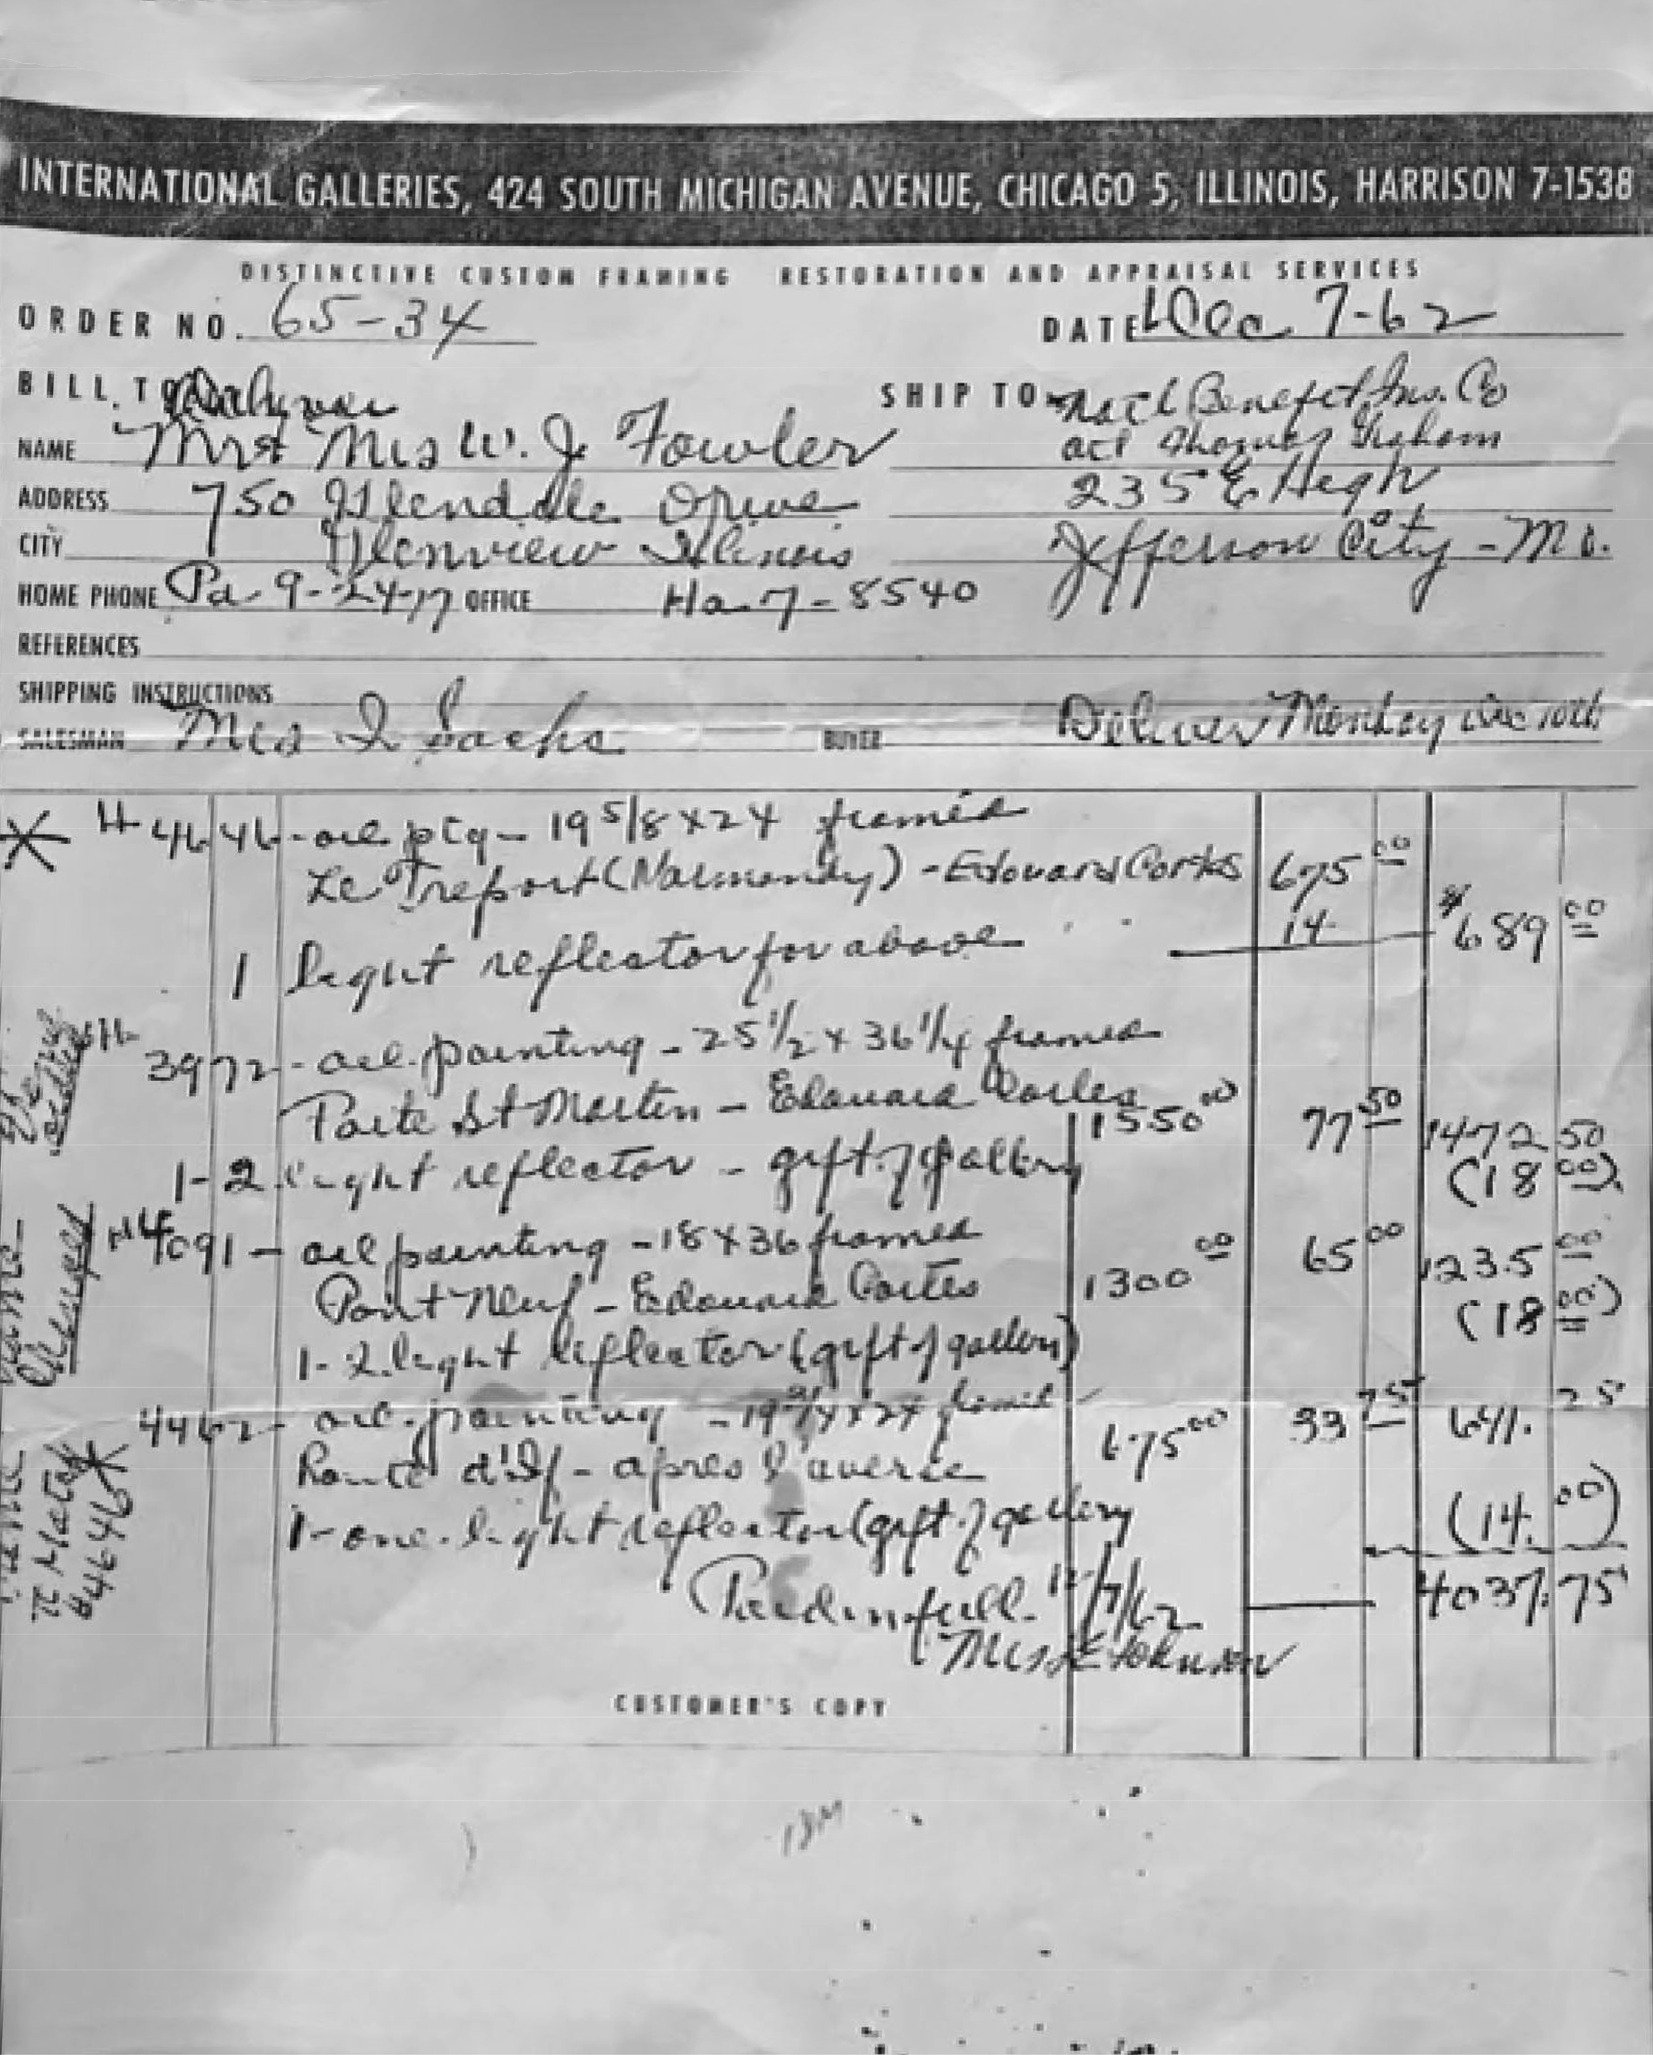 INTERNATIONAL GALLERIES, 424 SOUTH MICHIGAN AVENUE, CHICAGO 5, ILLINOIS, HARRISON 7-1538
DISTINCTIVE CUSTOM FRAMING RESTORATION AND APPRAISAL SERVICES
ORDER NO. 65-34 DATE Dec 7-62
BILL TO SHIP TO Natl Benefit Ins. Co
NAME Mr & Mrs W. J. Fowler att Thomas
ADDRESS 750 Glendale Drive 235 E High
CITY Glenview Illinois Jefferson City - Mo.
HOME PHONE Pa-9-2477 OFFICE Ha-7-8540
REFERENCES
SHIPPING INSTRUCTIONS
SALESMAN Mrs I Sachs BUYER Deliver Monday Dec 10th
# 4646 - oil ptg - 19 5/8 x 24 framed
Le Treport (Normandy) - Edouard Cortes 675 00
1 light reflector for above 14 $689 00
# 3972 - oil painting - 25 1/2 x 36 1/4 framed
Porte St Martin - Edouard Cortes 1550 00 77 50 1472 50
1-2 light reflector - gift of gallery (18 00)
#4091 - oil painting - 18 x 36 framed
Pont Neuf - Edouard Cortes 1300 00 65 00 1235 00
1-2 light reflector (gift of gallery) (18 00)
4462 - oil painting - 19 3/4 x 24 framed 33 75 641. 25
d'If - apres l'averse 675 00
1-one light reflector (gift of gallery (14. 00)
Paid in full. 12/7/62 4037.75
Miss E Johnson
to Match
#4646
CUSTOMER'S COPY